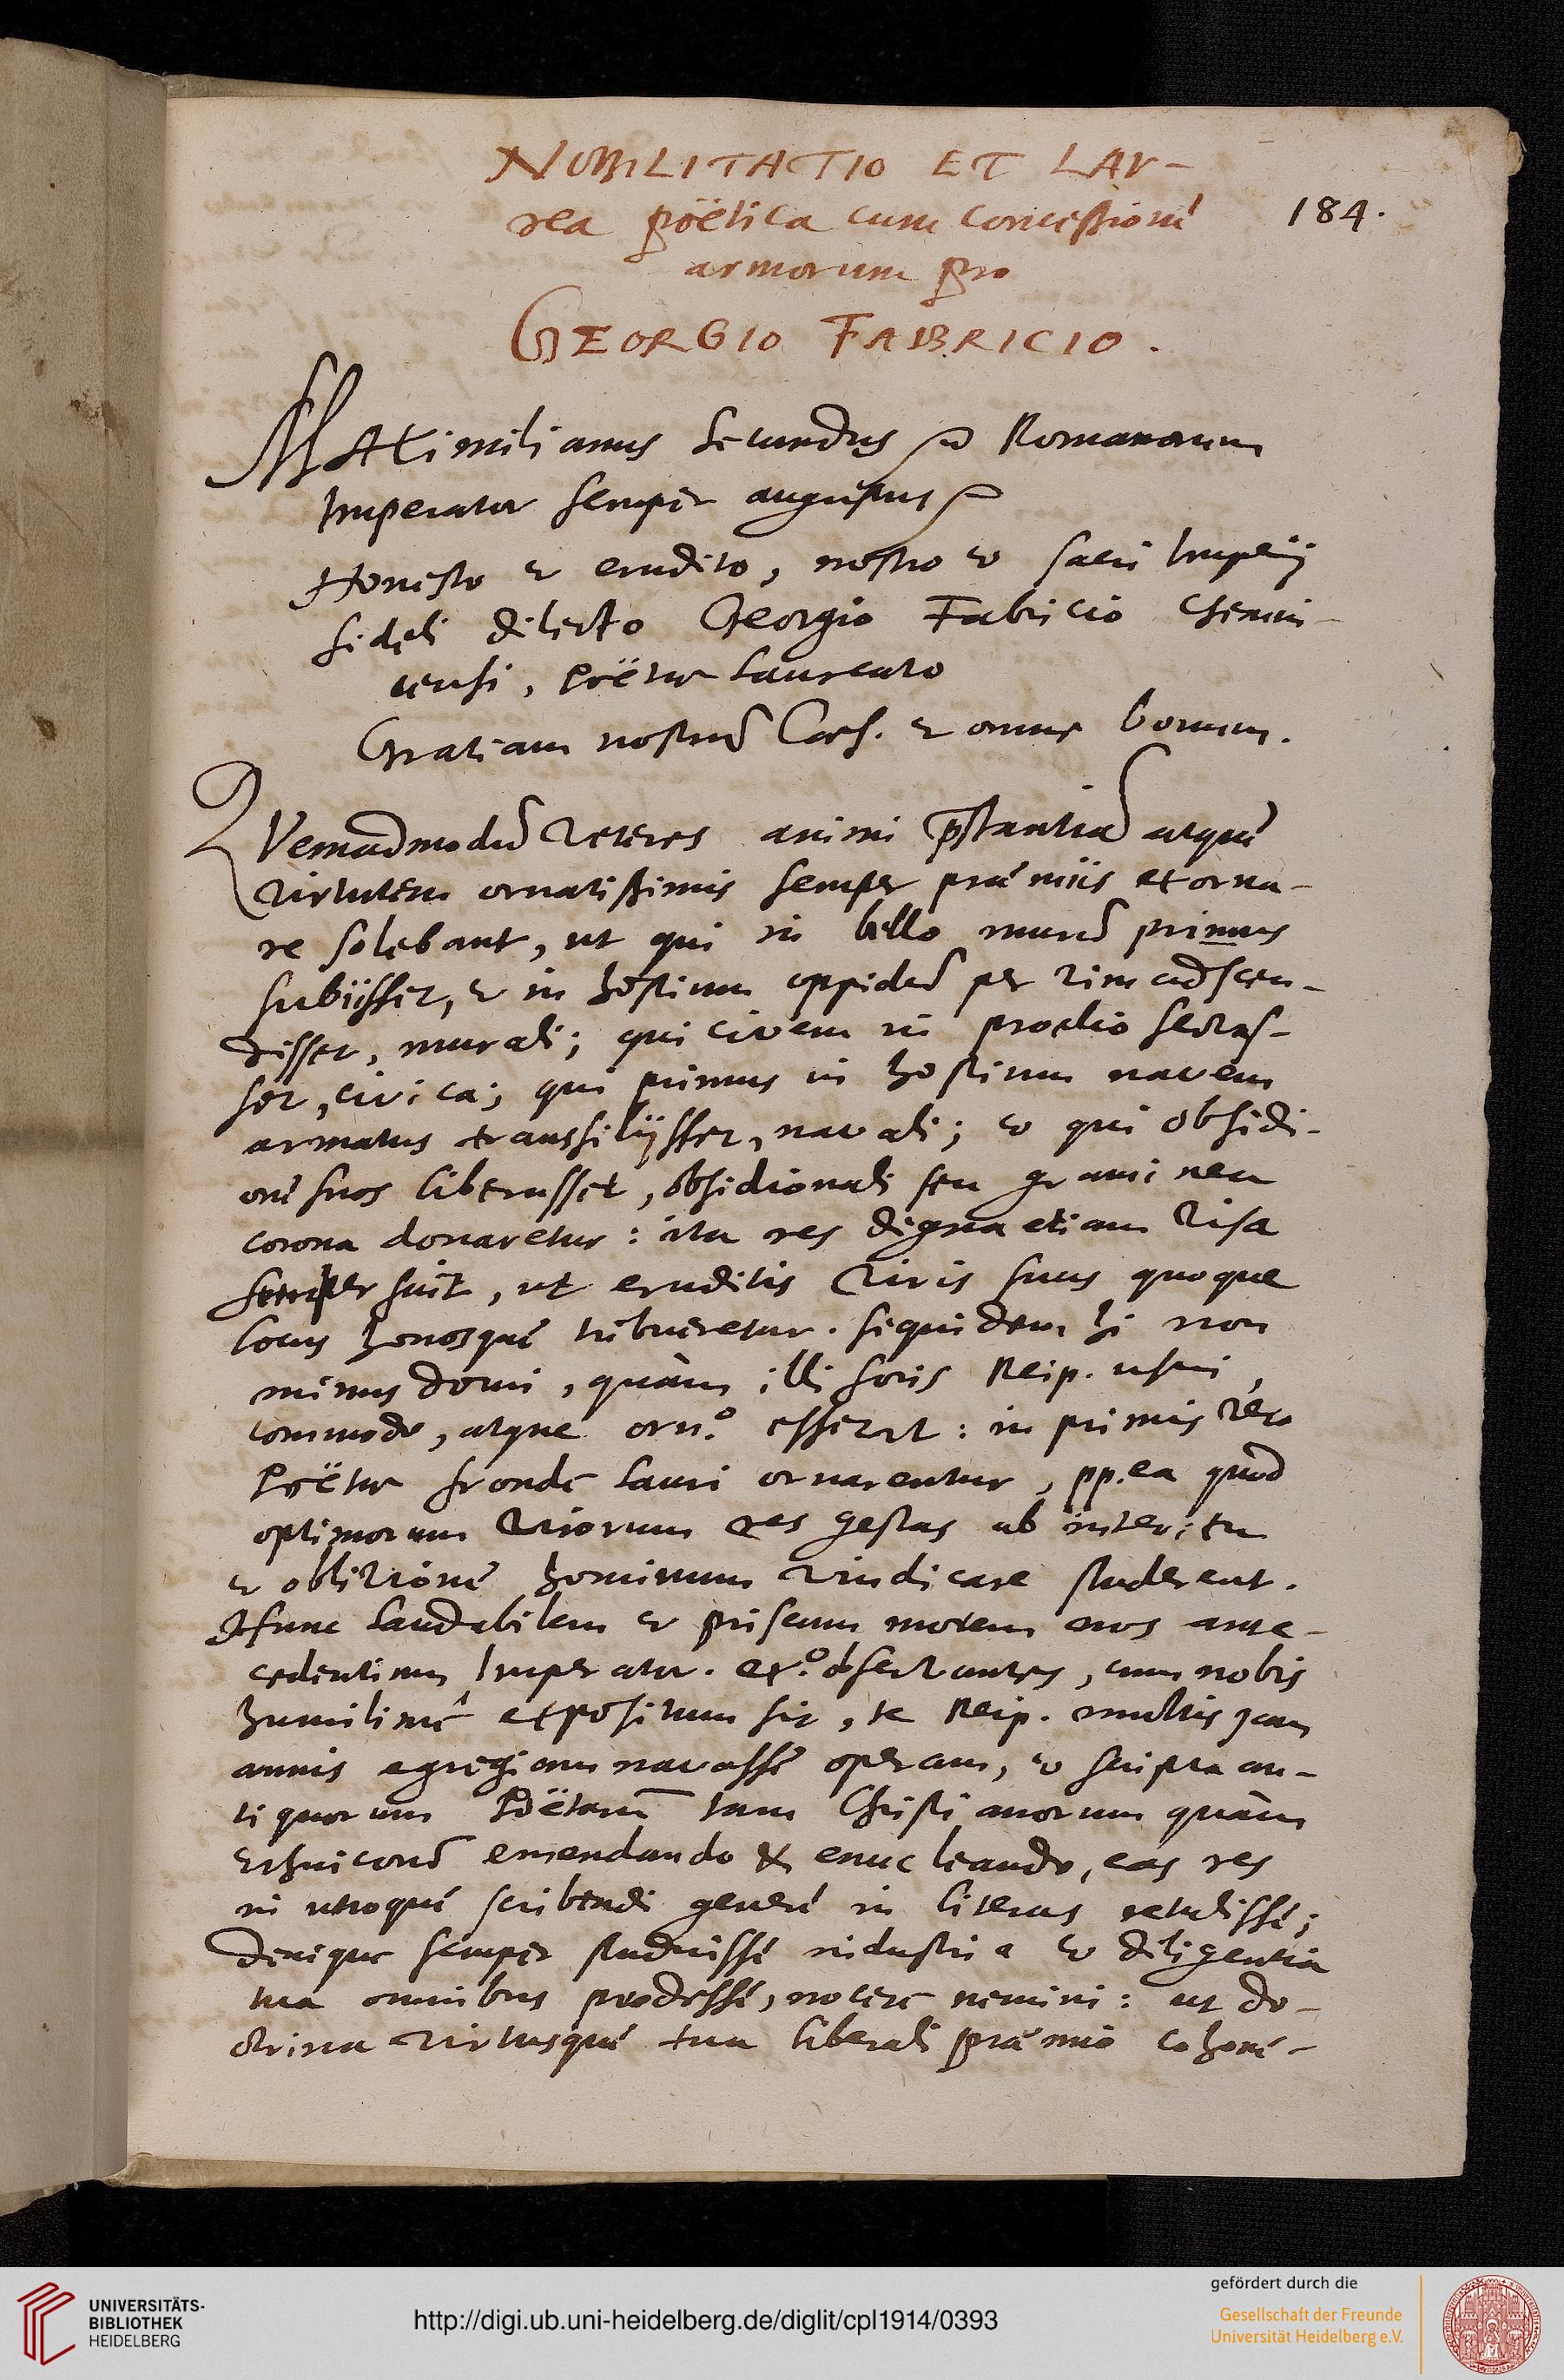 NOBILITATIO ET LAV-
rea poëtica cum concessione
184.
armorum pro
GEORGIO FABRICIO.
MAximilianus Secundus Romanorum
Imperator semper augustus
Honesto et erudito, nostro et sacri Imperij
fideli dilecto Georgio Fabricio Chemni-
censi, Poëtae Laureato
Gratiam nostrã Caes. et omne bonum.
QVemadmodũ veteres animi p̃stantiã atque
virtutem ornatissimis semper praemiis exorna-
re solebant, ut qui in bello murũ primus
subiisset, et in hostium oppidũ per vim adscen-
disset, murali; qui civem in proelio servas-
set, civica; qui primus in hostium navem
armatus transsilijsset, navali; et qui obsidi-
one suos liberasset, obsidionali seu graminea
corona donaretur: ita res digna etiam visa
semper fuit, ut eruditis viris suus quoque
locus honosque tribueretur. siquidem hi non
minus domi, quàm illi foris Reip. usui,
commodo, atque orn.º essent: in primis vero
Poëtae fronde lauri ornarentur, pp.ea quòd
optimorum virorum res gestas ab interitu
et oblivione hominum vindicare studerent.
Hunc laudabilem et priscum morem nos ante-
cedentium Imperator. ex.º observantes, cum nobis
humilimè expositum sit, te Reip. multis jam
annis egregiam navasse operam, et scripta an-
tiquorum Poëtarũ tam Christianorum quàm
Ethnicorũ emendando & enucleando, eas res
in utroque scribendi genere in literas retulisse;
denique semper studuisse industria et diligentia
tua omnibus prodesse, nocere nemini: ut do-
ctrina virtusque tua liberali praemio cohone-
UNIVERSITÄTS-
BIBLIOTHEK
HEIDELBERG
http://digi.ub.uni-heidelberg.de/diglit/cpl1914/0393
gefördert durch die
Gesellschaft der Freunde
Universität Heidelberg e.V.